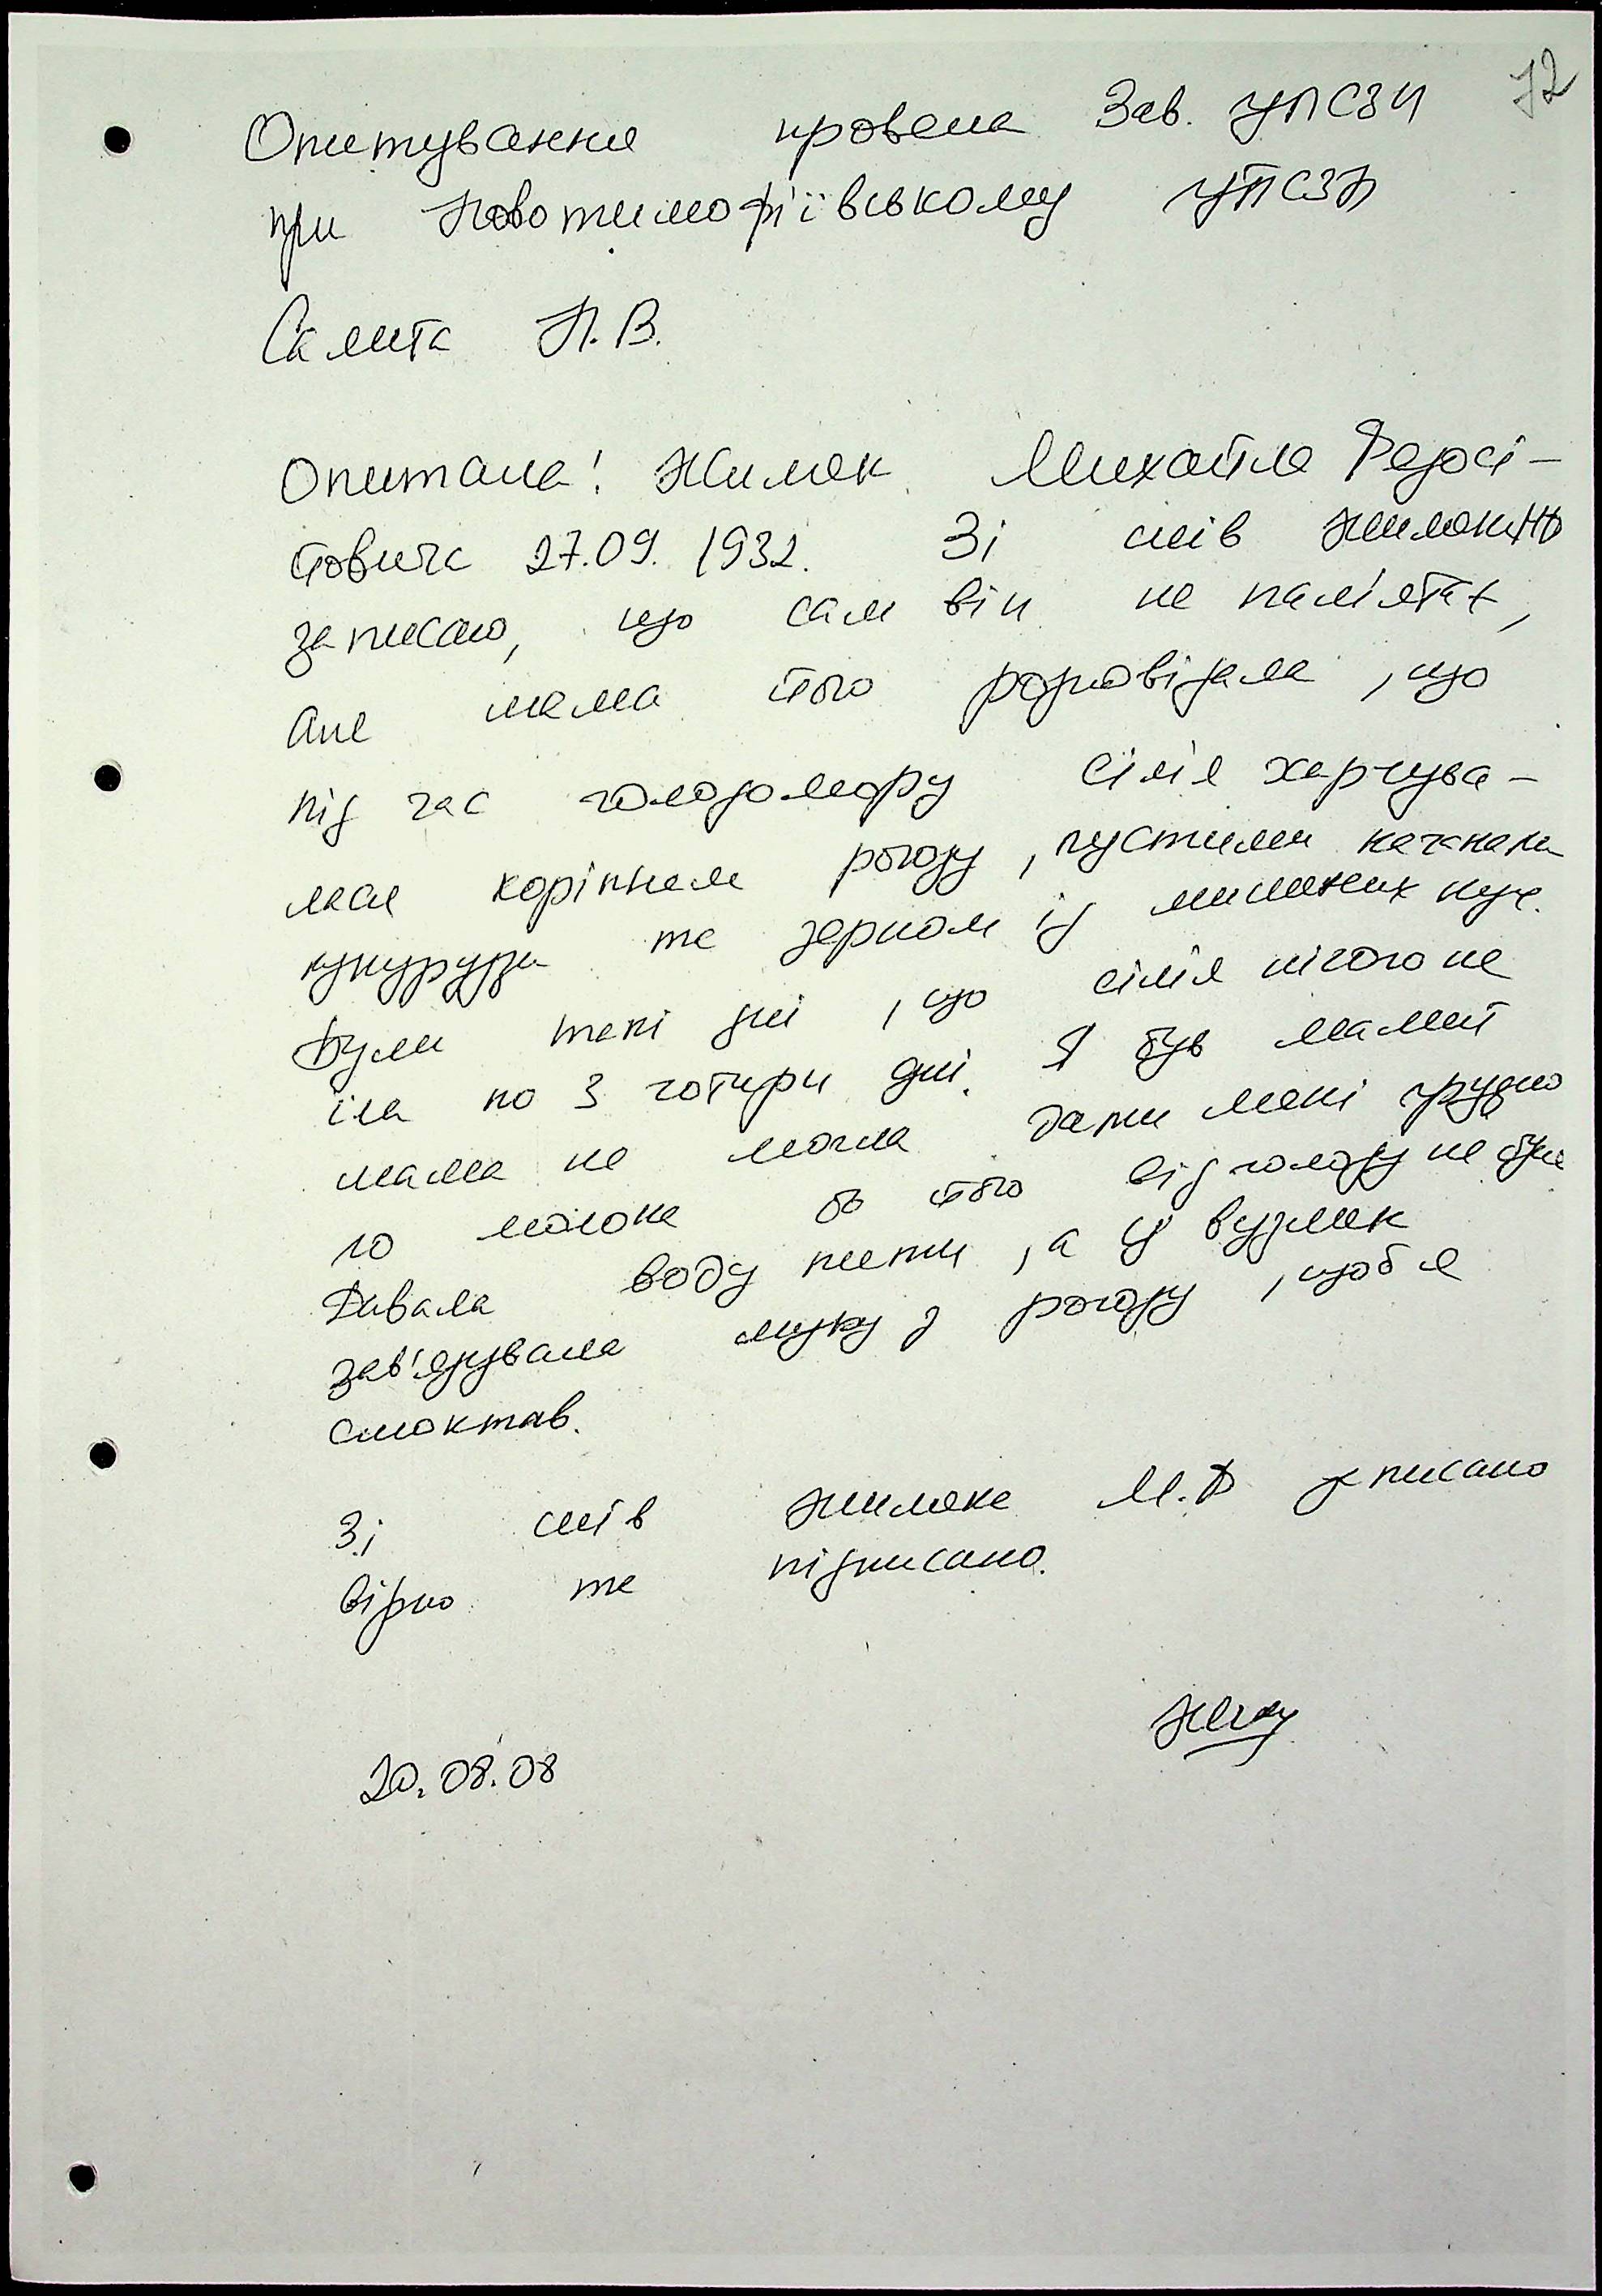 72
Опитування провела Зав. УПСЗН
при Новотимофіївському УПСЗН
Саліта Н.В.
Опитала! Жиляк Михайла Федосі-
йовича 27.09.1932. Зі слів
записано, що сам він не паміятає,
але мама його розповідала, що
під час голодомору сім'я харчува-
лася корінням рогозу, пустими качанами
кукурузи та зерном із мишиних куч.
Були такі дні, що сім'я нічого не
їла по 3 чотири дні. Я був малий
мама не могла дати мені грудно
го молока бо його від голоду не було
Давала воду пити, а у вузлик
зав'язувала муку з рогозу, щоб я
смоктав.
Зі слів Жиляка М.Ф записано
вірно та підписано.
20.08.08